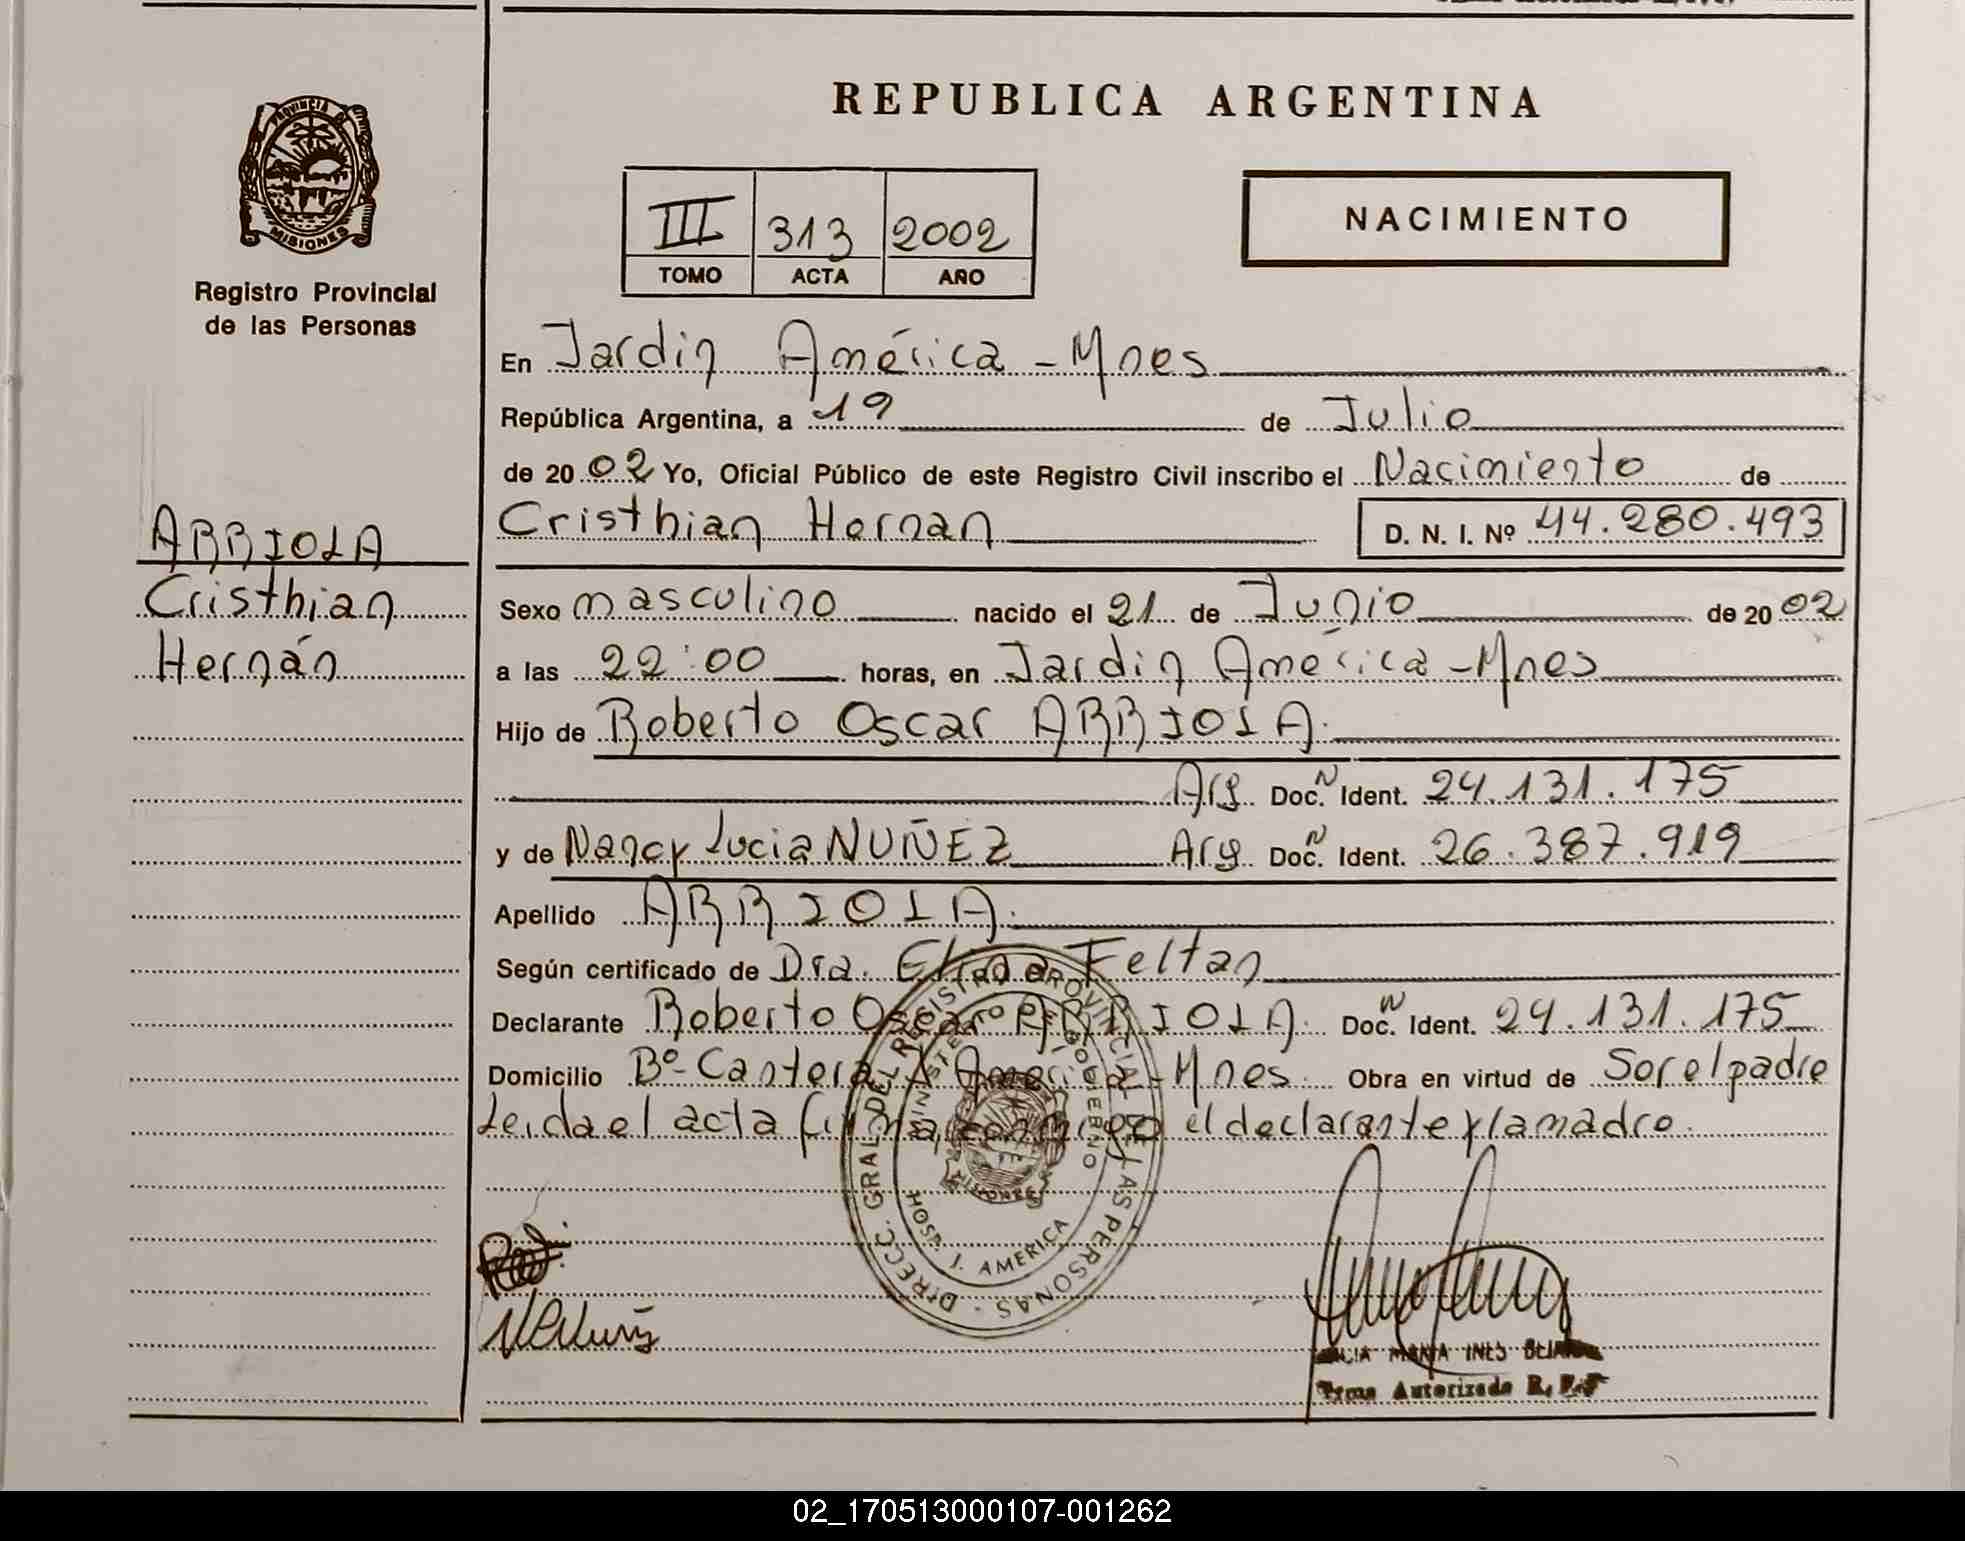 REPUBLICA ARGENTINA
PROVINCIA DE
MISIONES
Registro Provincial
de las Personas
III 313 2002
TOMO ACTA AÑO
NACIMIENTO
En Jardin América - Mnes
República Argentina, a 19 de Julio
de 2002 Yo, Oficial Público de este Registro Civil inscribo el Nacimiento de
Cristhian Hernan D. N. I. Nº 44.280.493
ARRIOLA
Cristhian
Hernán
Sexo masculino nacido el 21 de Junio de 2002
a las 22:00 horas, en Jardin América - Mnes
Hijo de Roberto Oscar ARRIOLA.
Arg Doc. N Ident. 24.131.175
y de Nancy Lucia NUÑEZ Arg Doc. N Ident. 26.387.919
Apellido ARRIOLA.
Según certificado de Dra. Feltan
Declarante Roberto Oscar ARRIOLA. Doc. N Ident. 24.131.175
Domicilio Bº- Cantera J. America - Mnes. Obra en virtud de Ser el padre
Leida el acta firma conmigo el declarante y la madre.
DIRECC. GRAL. DEL REGISTRO PROVINCIAL DE LAS PERSONAS
MINISTERIO DE GOBIERNO
MISIONES
HOSP. J. AMERICA
MARIA INES
Firma Autorizada R. P. P.
02_170513000107-001262